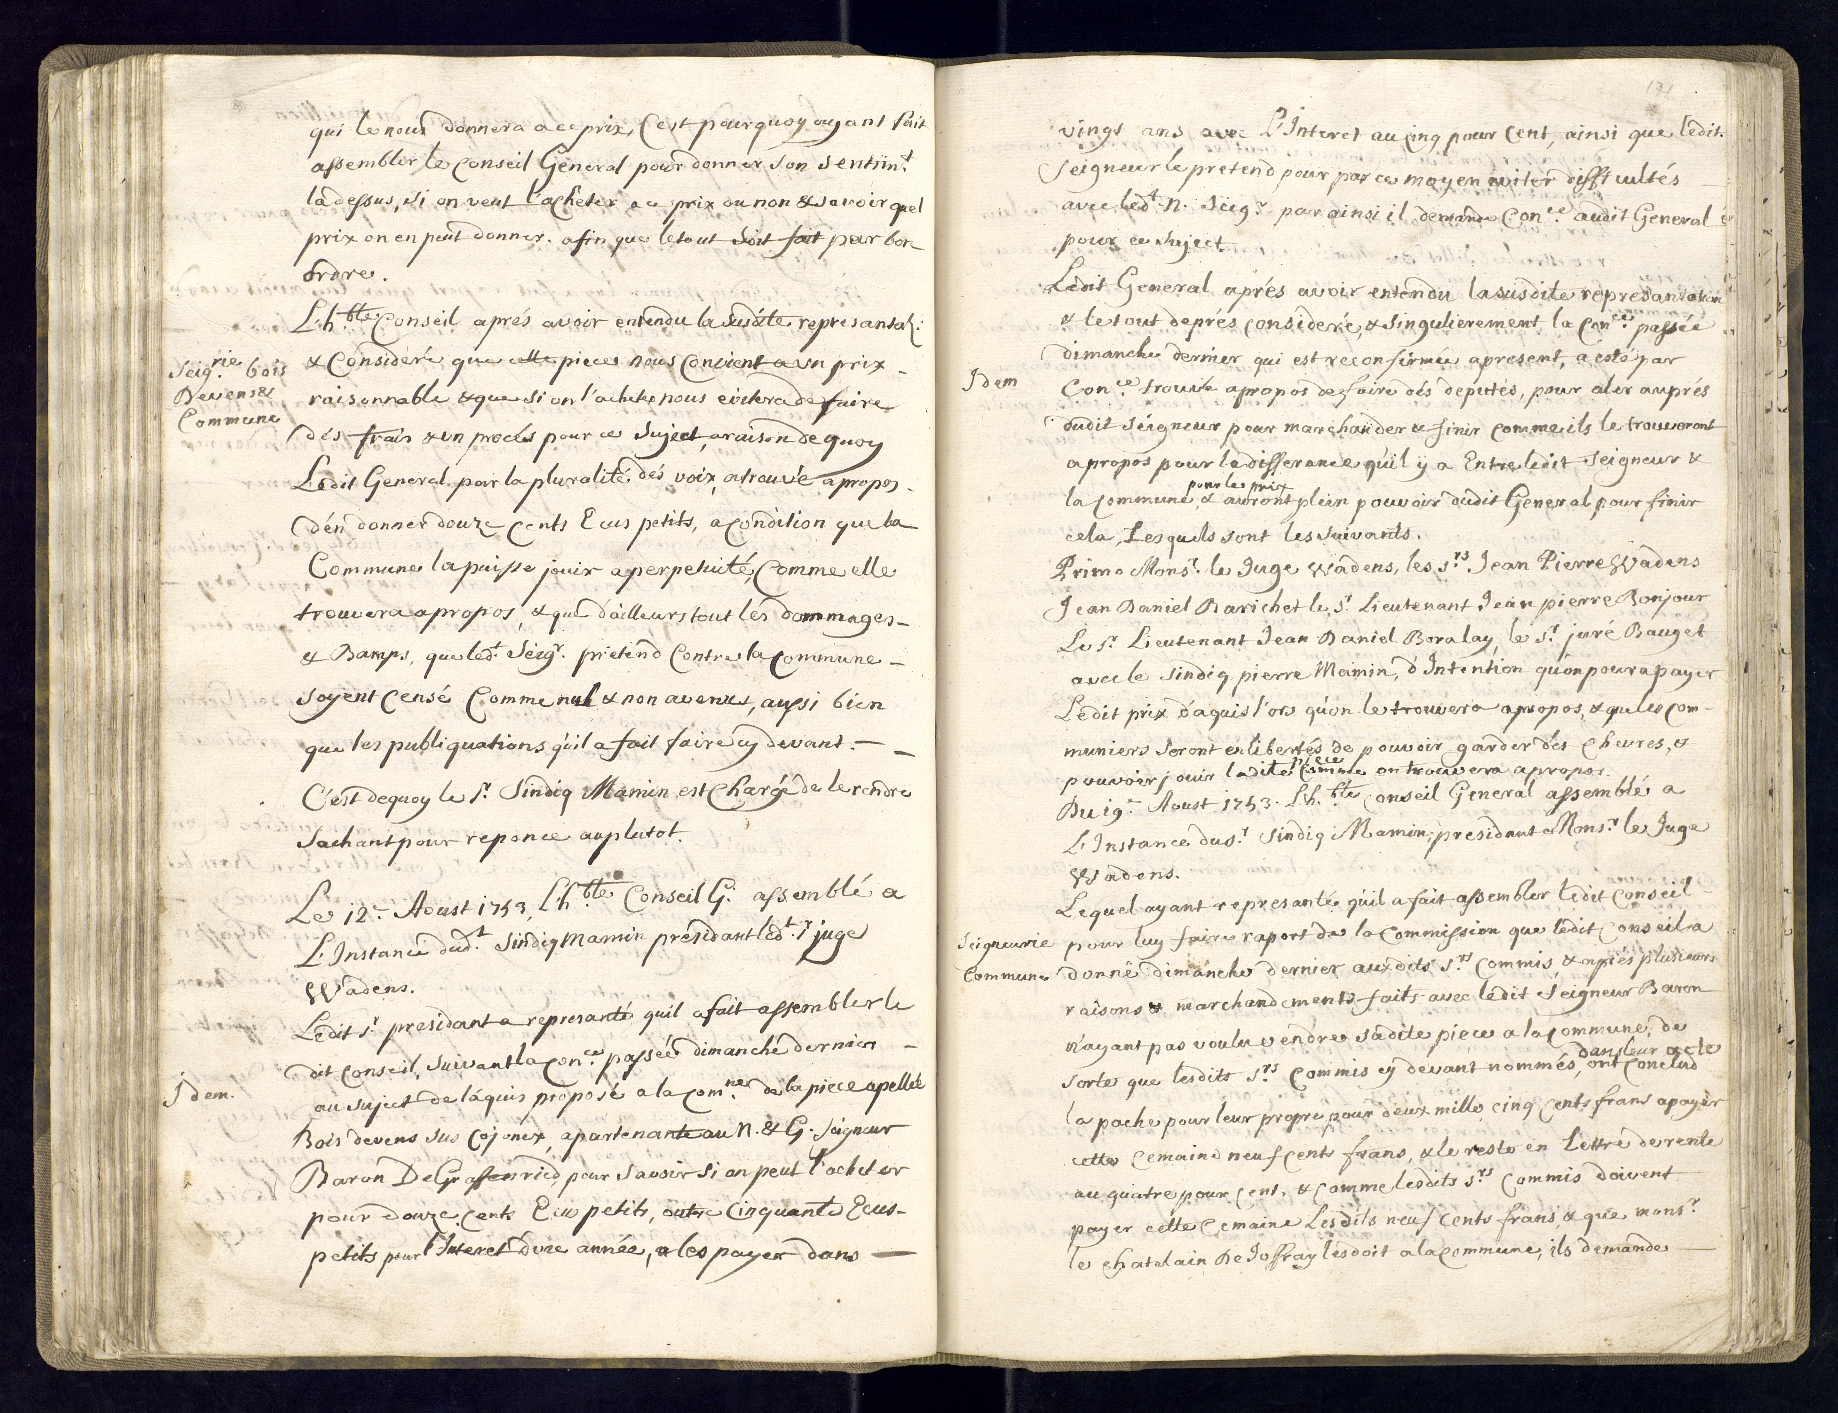 qui le nous donnera a ce prix, C'est pourquoy ayant fait
assembler le Conseil General pour donner son sentim.t
la dessus, si on veut l'acheter a ce prix ou non & savoir quel
prix on en peut donner. afin que le tout soit fait par bon
Ordre.
L'h.ble Conseil aprés avoir entendu la susdite represantaõ:
Seig.rie bois
Devens &
Commune
& Consideré que cette piece nous Convient a un prix
raisonnable & que si on l'achete nous evitera de faire
dés frais & un procés pour ce Sujeet, a raison de quoy
Ledit General par la pluralité dés voix, a trouvé a propos
d'en donner douze Cents Ecus petits, a condition que la
Commune la puisse jouir a perpetuité, Comme elle
trouvera a propos, & que d'ailleurs tout les dommages
& Bamps, que led.t Seig.r pretend Contre la Commune
soyent Censé Comme nul & non avenus, aussi bien
que les publiquations qu'il a fait faire cy devant. —
C'est dequoy le S.r Sindiq Mamin est Chargé de le rendre
Sachant pour reponce au plutot.
Le 12.e Aoust 1753, L'h.ble Conseil G. assemblé a
L'Instance dud.t Sindiq Mamin présidant led.t S.r juge
Wadens.
Ledit S.r presidant a represanté quil a fait assembler le
dit Conseil, Suivant la Con.ce passée dimanche dernier
Idem.
au sujeet de l'aquis proposé a la Com.ne de la piece apellée
Bois devens sus Cojonex, apartenante au N. & G. Seigneur
Baron De Graffenried, pour savoir si on peut l'acheter
pour douze Cents Ecus petits, outre Cinquante Ecus
petits pour l'Interet d'une année, a les payer dans —
191
vingt ans avec L'Interet au Cinq pour Cent, ainsi que ledit
Seigneur le pretend pour par ce moyen eviter difficultés
avec led.t N. Sieg.r par ainsi il demande Con.ce audit General
pour ce sujeet
Ledit General aprés avoir entendu la susdite represantation
& le tout deprés consideré, & singulierement la Con.ce passée
dimanche dernier qui est reconfirmée apresent, a esté par
Idem
Con.ce trouvé apropos de faire dés deputés, pour aler auprés
dudit Séigneur pour marchander & finir comme ils le trouveront
apropos pour la differance qu'il y a Entre ledit Seigneur &
pour le prix
la Commune, & auront plein pouvoir dudit General pour finir
cela, Lesquels sont les suivants.
Primo Mons.r le Juge Wadens, les S.rs Jean Pierre Wadens
Jean Daniel Barichet le S.r Lieutenant Jean pierre Bonjour
Le S.r Lieutenant Jean Daniel Boralay, le S.r juré Bauget
avec le Sindiq pierre Mamin, d'Intention qu'on poura payer
Ledit prix d'aquis l'ors qu'on le trouvera apropos, & que les Com-
muniers Seront en libertés de pouvoir garder dés Chevres, &
piece
pouvoir jouir ladite Comme on trouvera apropos.
Du 19.e Aoust 1753. L'h.ble Conseil General assemblé a
L'Instance du S.r Sindiq Mamin, presidant Mons.r le Juge
Wadens.
Lequel ayant represanté qu'il a fait assembler ledit Conseil
Seigneurie
Commune
pour luy faire raport de la Commission que ledit Conseil a
donné dimanche dernier auxdits S.rs Commis, & aprés plusieurs
raisons & marchandements faits avec ledit Seigneur Baron
n'ayant pas voulu vendre sadite piece a la Commune, de
dans leur acte
sorte que lesdits S.rs Commis cy devant nommés, ont Conclud
la pache pour leur propre pour deux mille cinq Cents frans a payer
cette Cemaine neuf Cents frans, & le reste en Lettre de rente
au quatre pour Cent, & Comme lesdits S.rs Commis doivent
payer cette Cemaine Lesdits neuf Cents frans, & que mons.r
le Chatelain De Joffray lés doit a la Commune, ils demande —